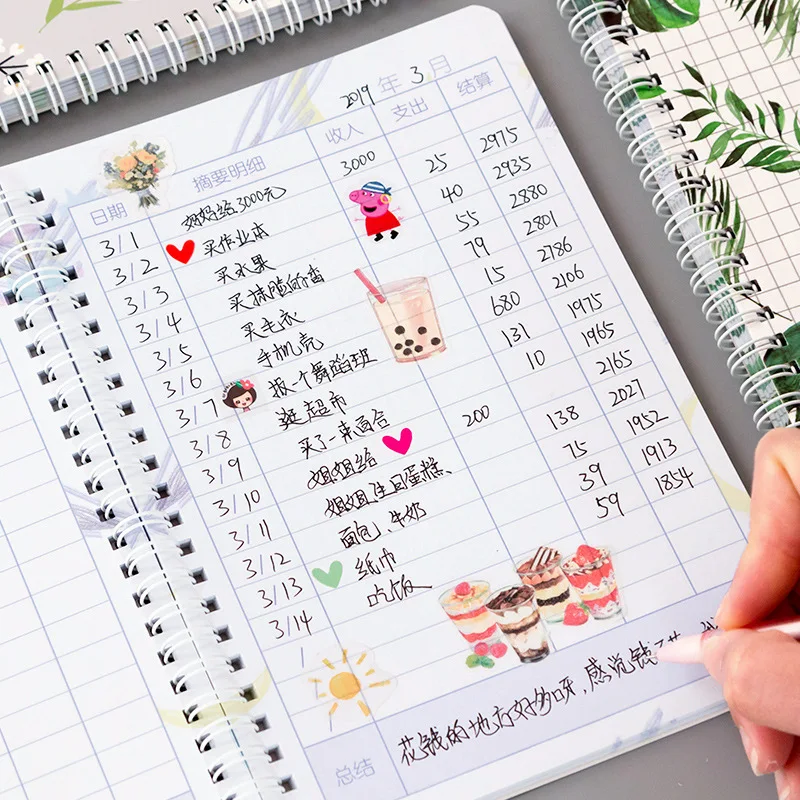 2019年3月
日期 摘要明细 收入 支出 结算
3/1 妈妈给3000元 3000
3/2 买作业本 25 2975
3/3 买水果 40 2935
3/4 买抹脸的香 55 2880
3/5 买毛衣 79 2801
3/6 手机壳 15 2786
3/7 报一个舞蹈班 680 2106
3/8 逛超市 131 1975
3/9 买了一束百合 10 1965
3/10 姐姐给 200 2165
3/11 姐姐生日蛋糕、 138 2027
3/12 面包、牛奶 75 1952
3/13 纸巾 39 1913
3/14 吃饭 59 1854
/
总结 花钱的地方好多呀,感觉钱